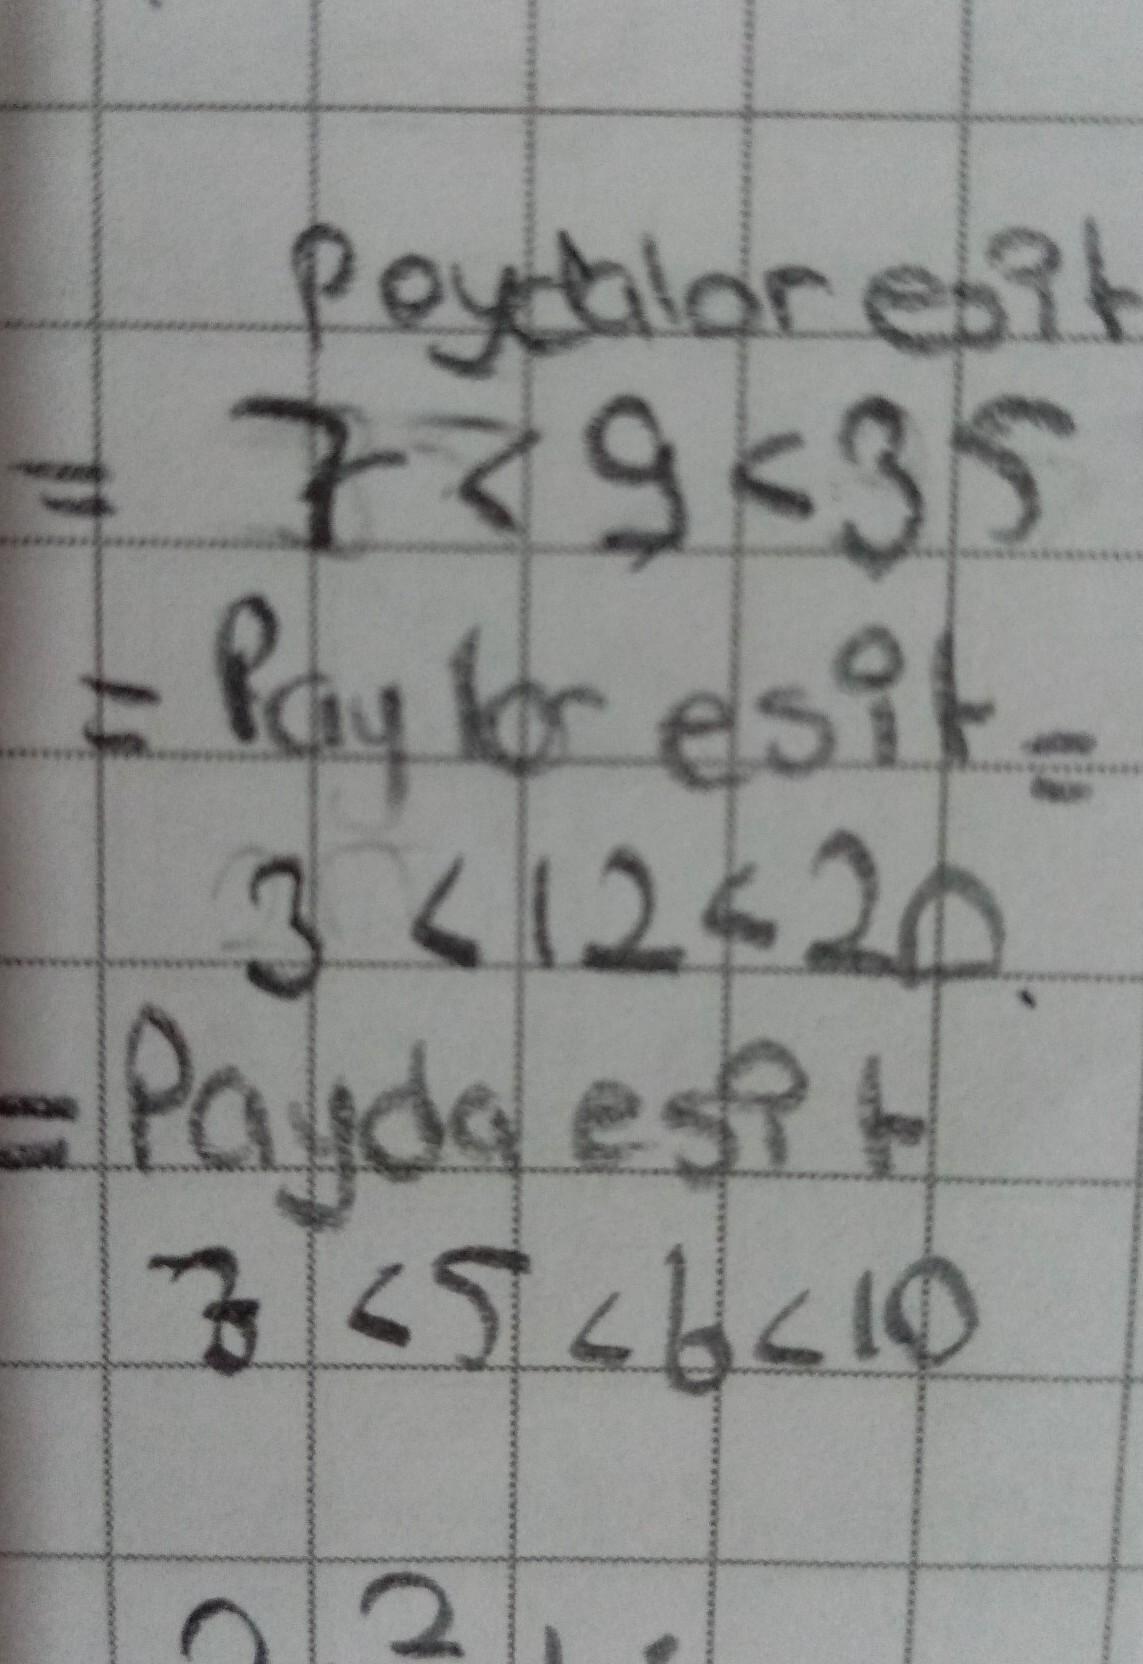 Paydalar esit
= 7 < 9 < 35
= Paylar esit =
3 < 12 < 20
= Payda esit
3 < 5 < 6 < 10
2